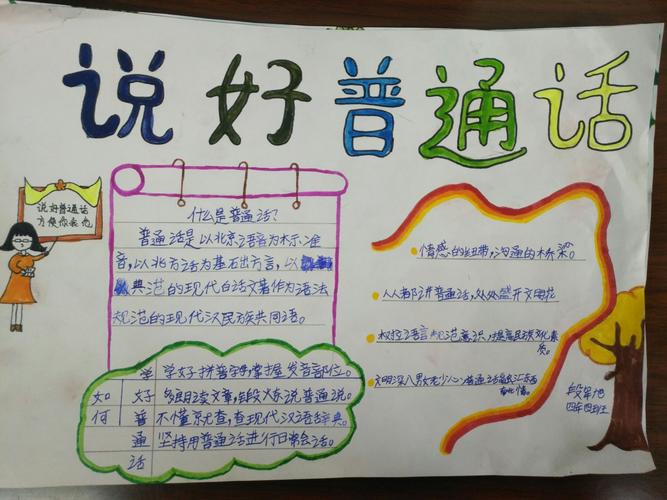 说好普通话
说好普通话
方便你我他
什么是普通话?
普通话是以北京语音为标准
音,以北方话为基石出方言,以
典范的现代白话文著作为语法
规范的现代汉民族共同语。
如何
学好普通话
学好拼音字母,掌握发音部位。
多朗读文章,锻炼说普通说。
不懂就查,查现代汉语辞典。
坚持用普通话进行日常会话。
情感的纽带,沟通的桥梁。
人人都讲普通话,处处盛开文明花
树立语言规范意识,提高民族文化素
质。
四年四班